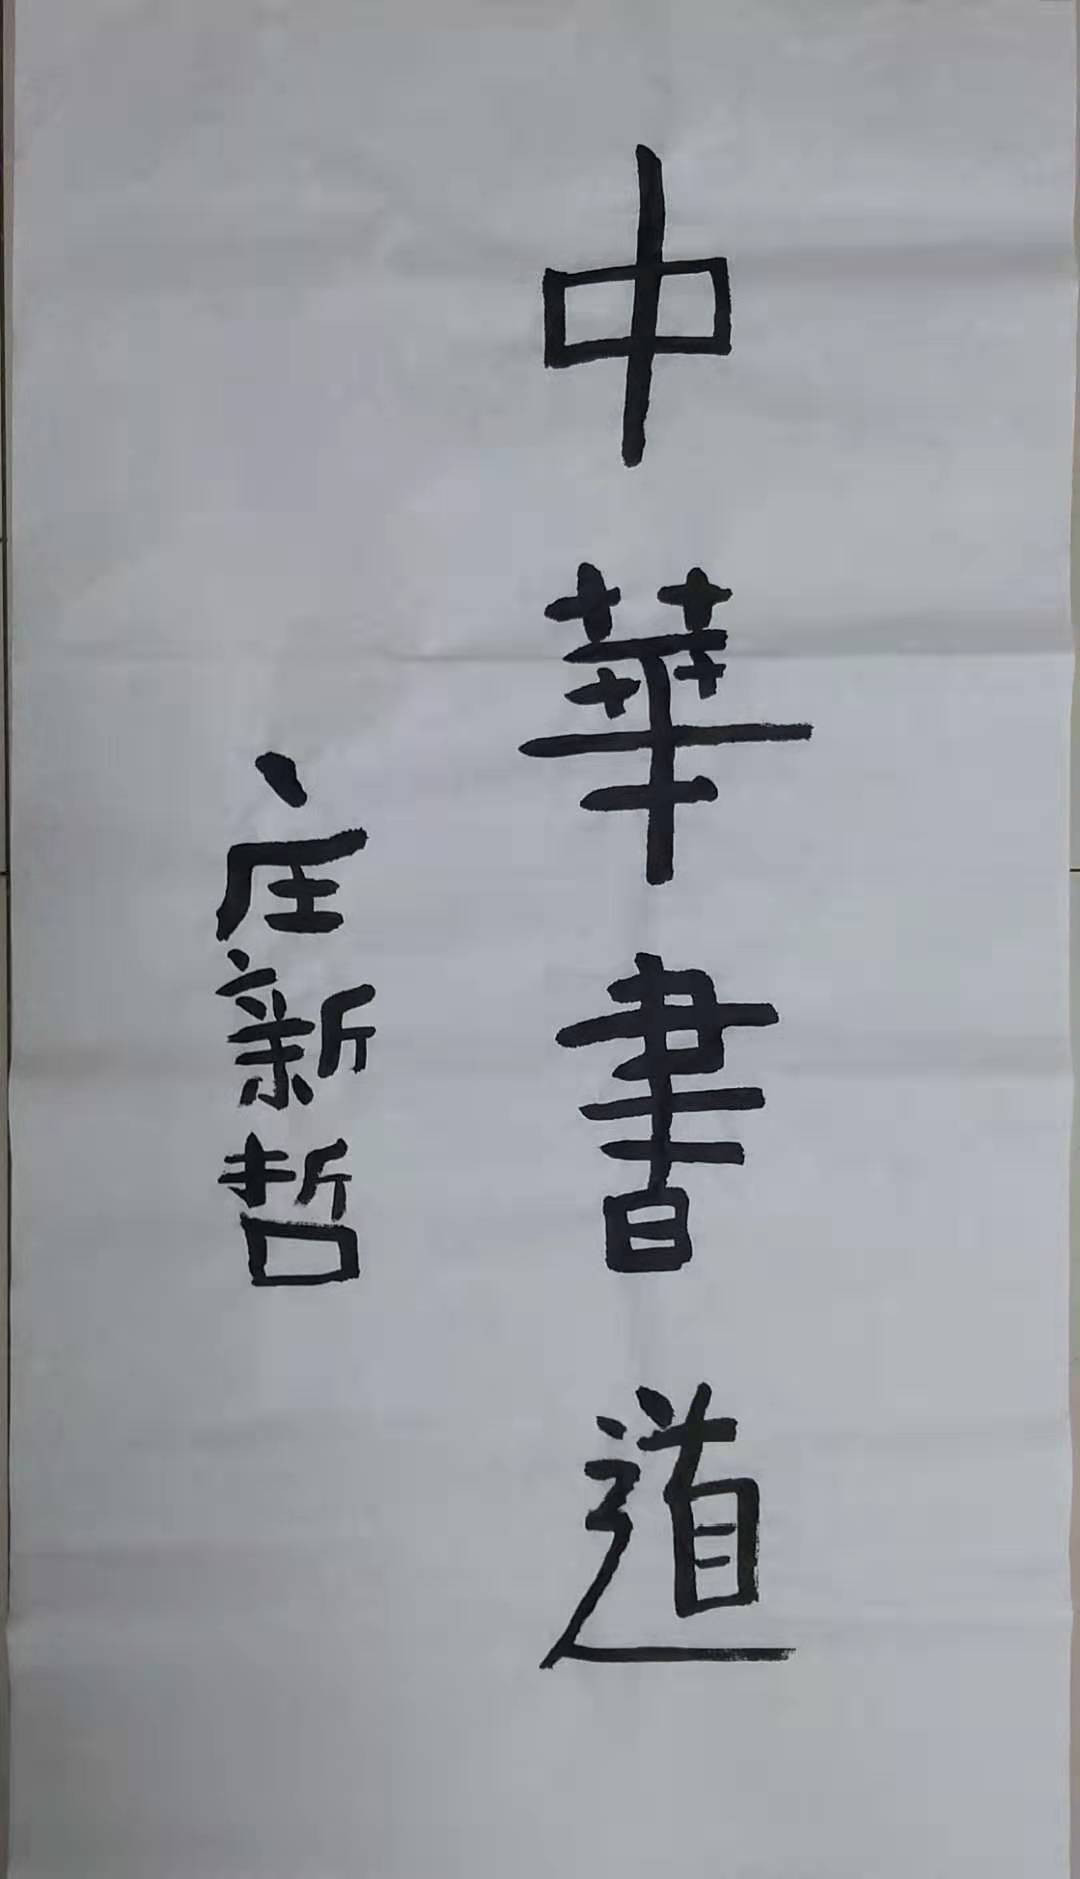 中華書道
庄新哲